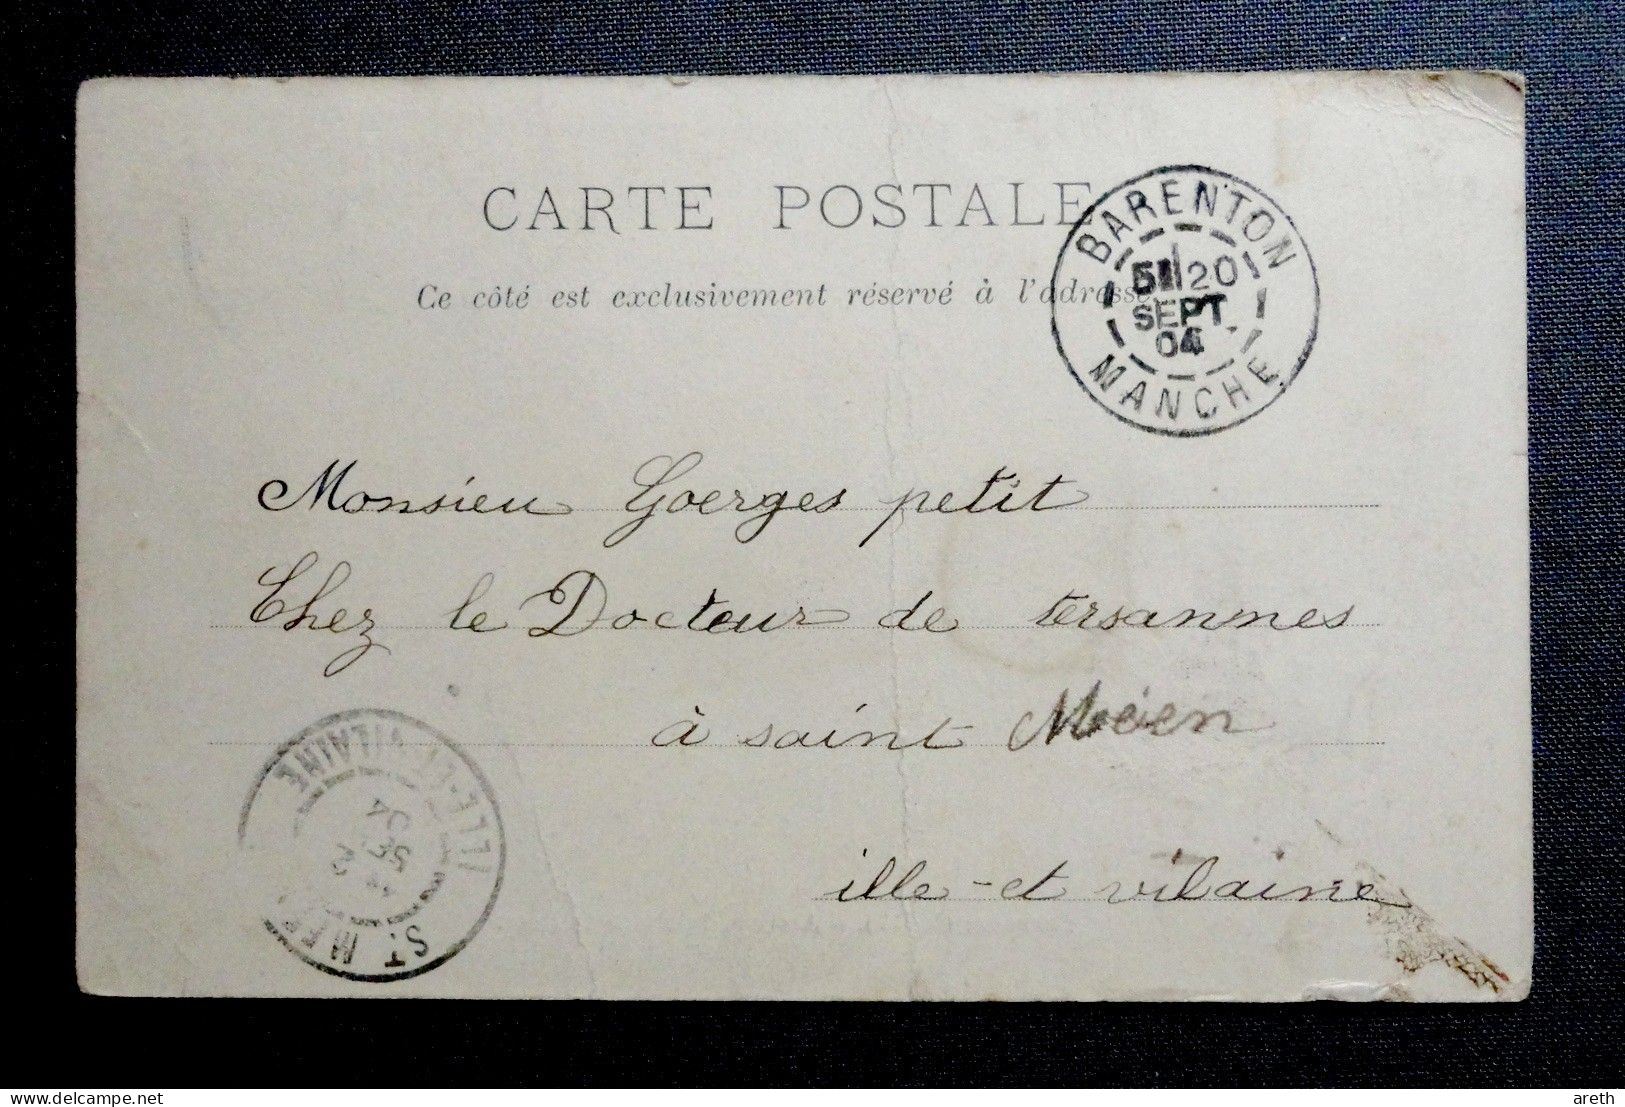 CARTE POSTALE
Ce côté est exclusivement réservé à l'adresse
BARENTON
20
SEPT.
04
MANCHE
Monsieu Goerges petit
Chez le Docteur de tersannes
à saint Méen
ille-et vilaine
ILLE-ET-VILAINE
ST
areth